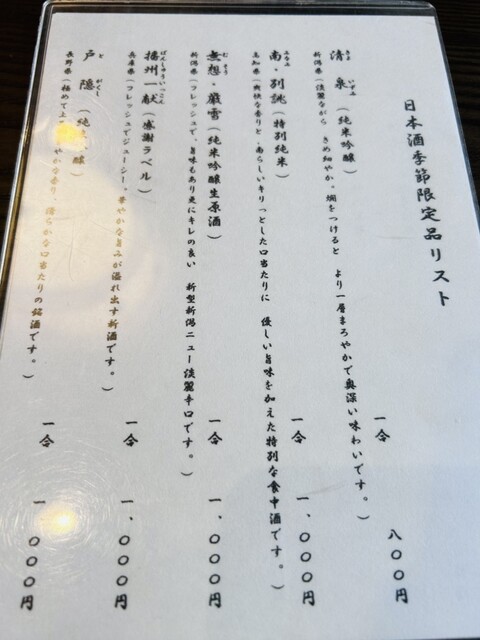 日本酒季節限定品リスト
清泉（純米吟醸）
きよ いずみ
一合 八〇〇円
新潟県（淡麗ながら、きめ細やか。燗をつけると より一層まろやかで奥深い味わいです。）
南・別誂（特別純米）
一合 一、〇〇〇円
高知県（爽快な香りと、南らしいキリっとした口当たりに 優しい旨味を加えた特別な食中酒です。）
無想・巌雪（純米吟醸生原酒）
む そう
一合 一、〇〇〇円
新潟県（フレッシュで、旨味もあり更にキレの良い 新型新潟ニュー淡麗辛口です。）
播州一献（感謝ラベル）
ばんしゅういっこん
一合 一、〇〇〇円
兵庫県（フレッシュでジューシー。華やかな旨みが溢れ出す新酒です。）
戸隠（純 醸）
と がくし
一合 一、〇〇〇円
長野県（極めて上 やかな香り、滑らかな口当たりの銘酒です。）